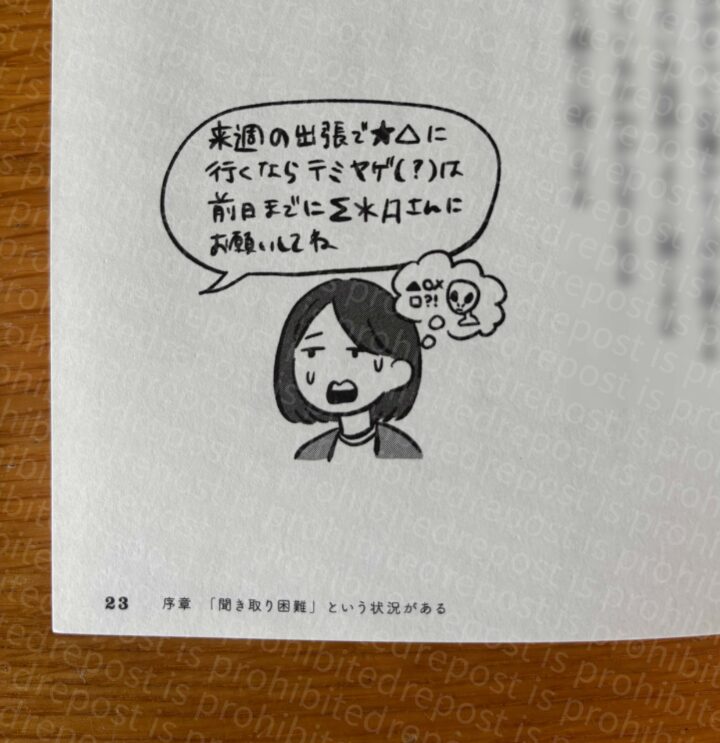 来週の出張で★△に
行くならテミヤゲ(?)は
前日までにΣ＊口さんに
お願いしてね
▲○×
□?!
23 序章 「聞き取り困難」という状況がある
repost is prohibited